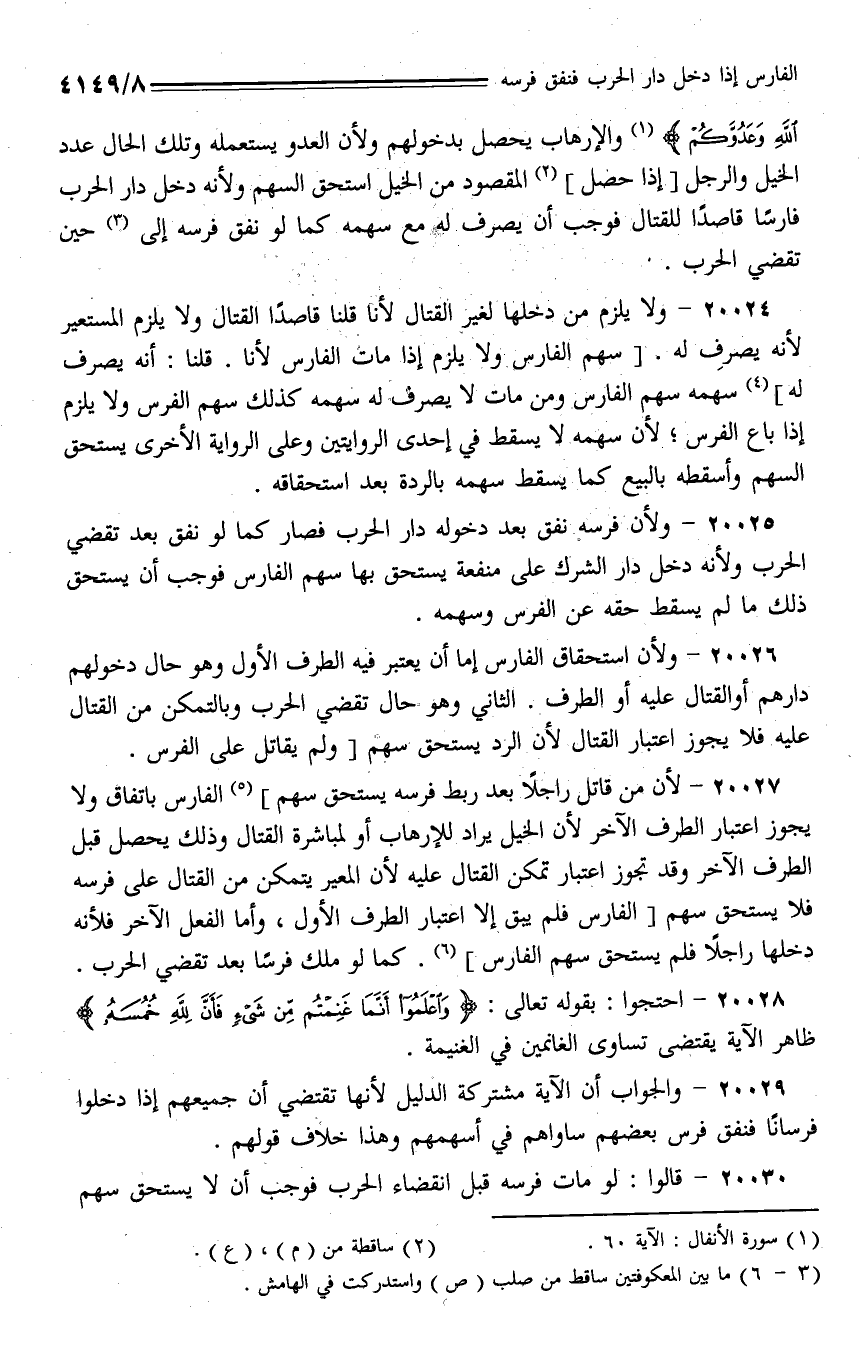 الفارس إذا دخل دار الحرب فنفق فرسه ٤١٤٩/٨
ٱللَّهِ وَعَدُوَّكُمْ ﴾ (١) والإرهاب يحصل بدخولهم ولأن العدو يستعمله وتلك الحال عدد
الخيل والرجل [ إذا حضل ] (٢) المقصود من الخيل استحق السهم ولأنه دخل دار الحرب
فارسًا قاصدًا للقتال فوجب أن يصرف له مع سهمه كما لو نفق فرسه إلى (٣) حين
تقضي الحرب .
٢٠٠٢٤ - ولا يلزم من دخلها لغير القتال لأنا قلنا قاصدًا القتال ولا يلزم المستعير
لأنه يصرف له . [ سهم الفارس ولا يلزم إذا مات الفارس لأنا . قلنا : أنه يصرف
له ] (٤) سهمه سهم الفارس ومن مات لا يصرف له سهمه كذلك سهم الفرس ولا يلزم
إذا باع الفرس ؛ لأن سهمه لا يسقط في إحدى الروايتين وعلى الرواية الأخرى يستحق
السهم وأسقطه بالبيع كما يسقط سهمه بالردة بعد استحقاقه .
٢٠٠٢٥ - ولأن فرسه نفق بعد دخوله دار الحرب فصار كما لو نفق بعد تقضي
الحرب ولأنه دخل دار الشرك على منفعة يستحق بها سهم الفارس فوجب أن يستحق
ذلك ما لم يسقط حقه عن الفرس وسهمه .
٢٠٠٢٦ - ولأن استحقاق الفارس إما أن يعتبر فيه الطرف الأول وهو حال دخولهم
دارهم أوالقتال عليه أو الطرف . الثاني وهو حال تقضي الحرب وبالتمكن من القتال
عليه فلا يجوز اعتبار القتال لأن الرد يستحق سهم [ ولم يقاتل على الفرس .
٢٠٠٢٧ - لأن من قاتل راجلًا بعد ربط فرسه يستحق سهم ] (٥) الفارس باتفاق ولا
يجوز اعتبار الطرف الآخر لأن الخيل يراد للإرهاب أو لمباشرة القتال وذلك يحصل قبل
الطرف الآخر وقد تجوز اعتبار تمكن القتال عليه لأن المعير يتمكن من القتال على فرسه
فلا يستحق سهم [ الفارس فلم يبق إلا اعتبار الطرف الأول ، وأما الفعل الآخر فلأنه
دخلها راجلًا فلم يستحق سهم الفارس ] (٦) . كما لو ملك فرسًا بعد تقضي الحرب .
٢٠٠٢٨ - احتجوا : بقوله تعالى : ﴿ وَٱعْلَمُوٓا۟ أَنَّمَا غَنِمْتُم مِّن شَىْءٍ فَأَنَّ لِلَّهِ خُمُسَهُۥ ﴾
ظاهر الآية يقتضى تساوى الغانمين في الغنيمة .
٢٠٠٢٩ - والجواب أن الآية مشتركة الدليل لأنها تقتضي أن جميعهم إذا دخلوا
فرسانًا فنفق فرس بعضهم ساواهم في أسهمهم وهذا خلاف قولهم .
٢٠٠٣٠ - قالوا : لو مات فرسه قبل انقضاء الحرب فوجب أن لا يستحق سهم
(١) سورة الأنفال : الآية ٦٠ . (٢) ساقطة من ( م ) ، ( ع ) .
(٣ - ٦) ما بين المعكوفتين ساقط من صلب ( ص ) واستدركت في الهامش .